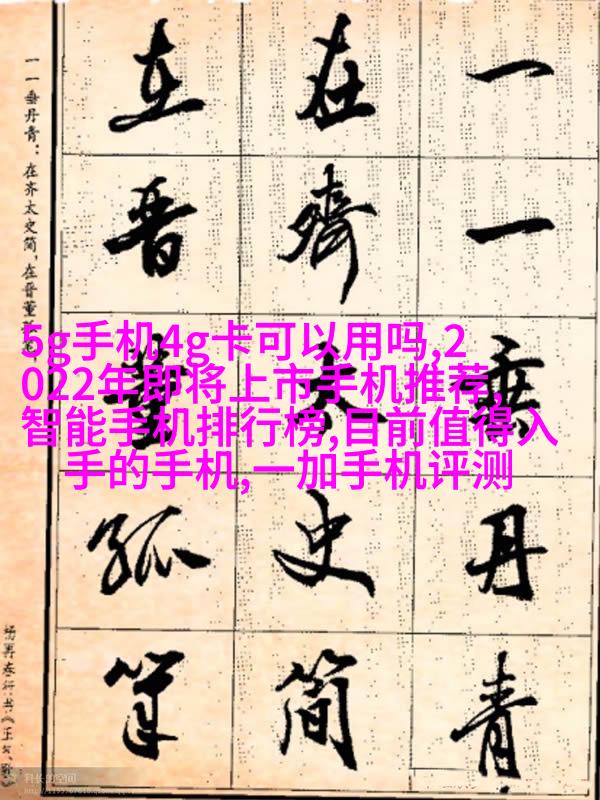 一一垂丹青
在齐太史简
在晋董狐笔
一一垂丹青：在齐太史简，在晋董狐笔
5g手机4g卡可以用吗,2
022年即将上市手机推荐,
智能手机排行榜,目前值得入
手的手机,一加手机评测
科长的空间